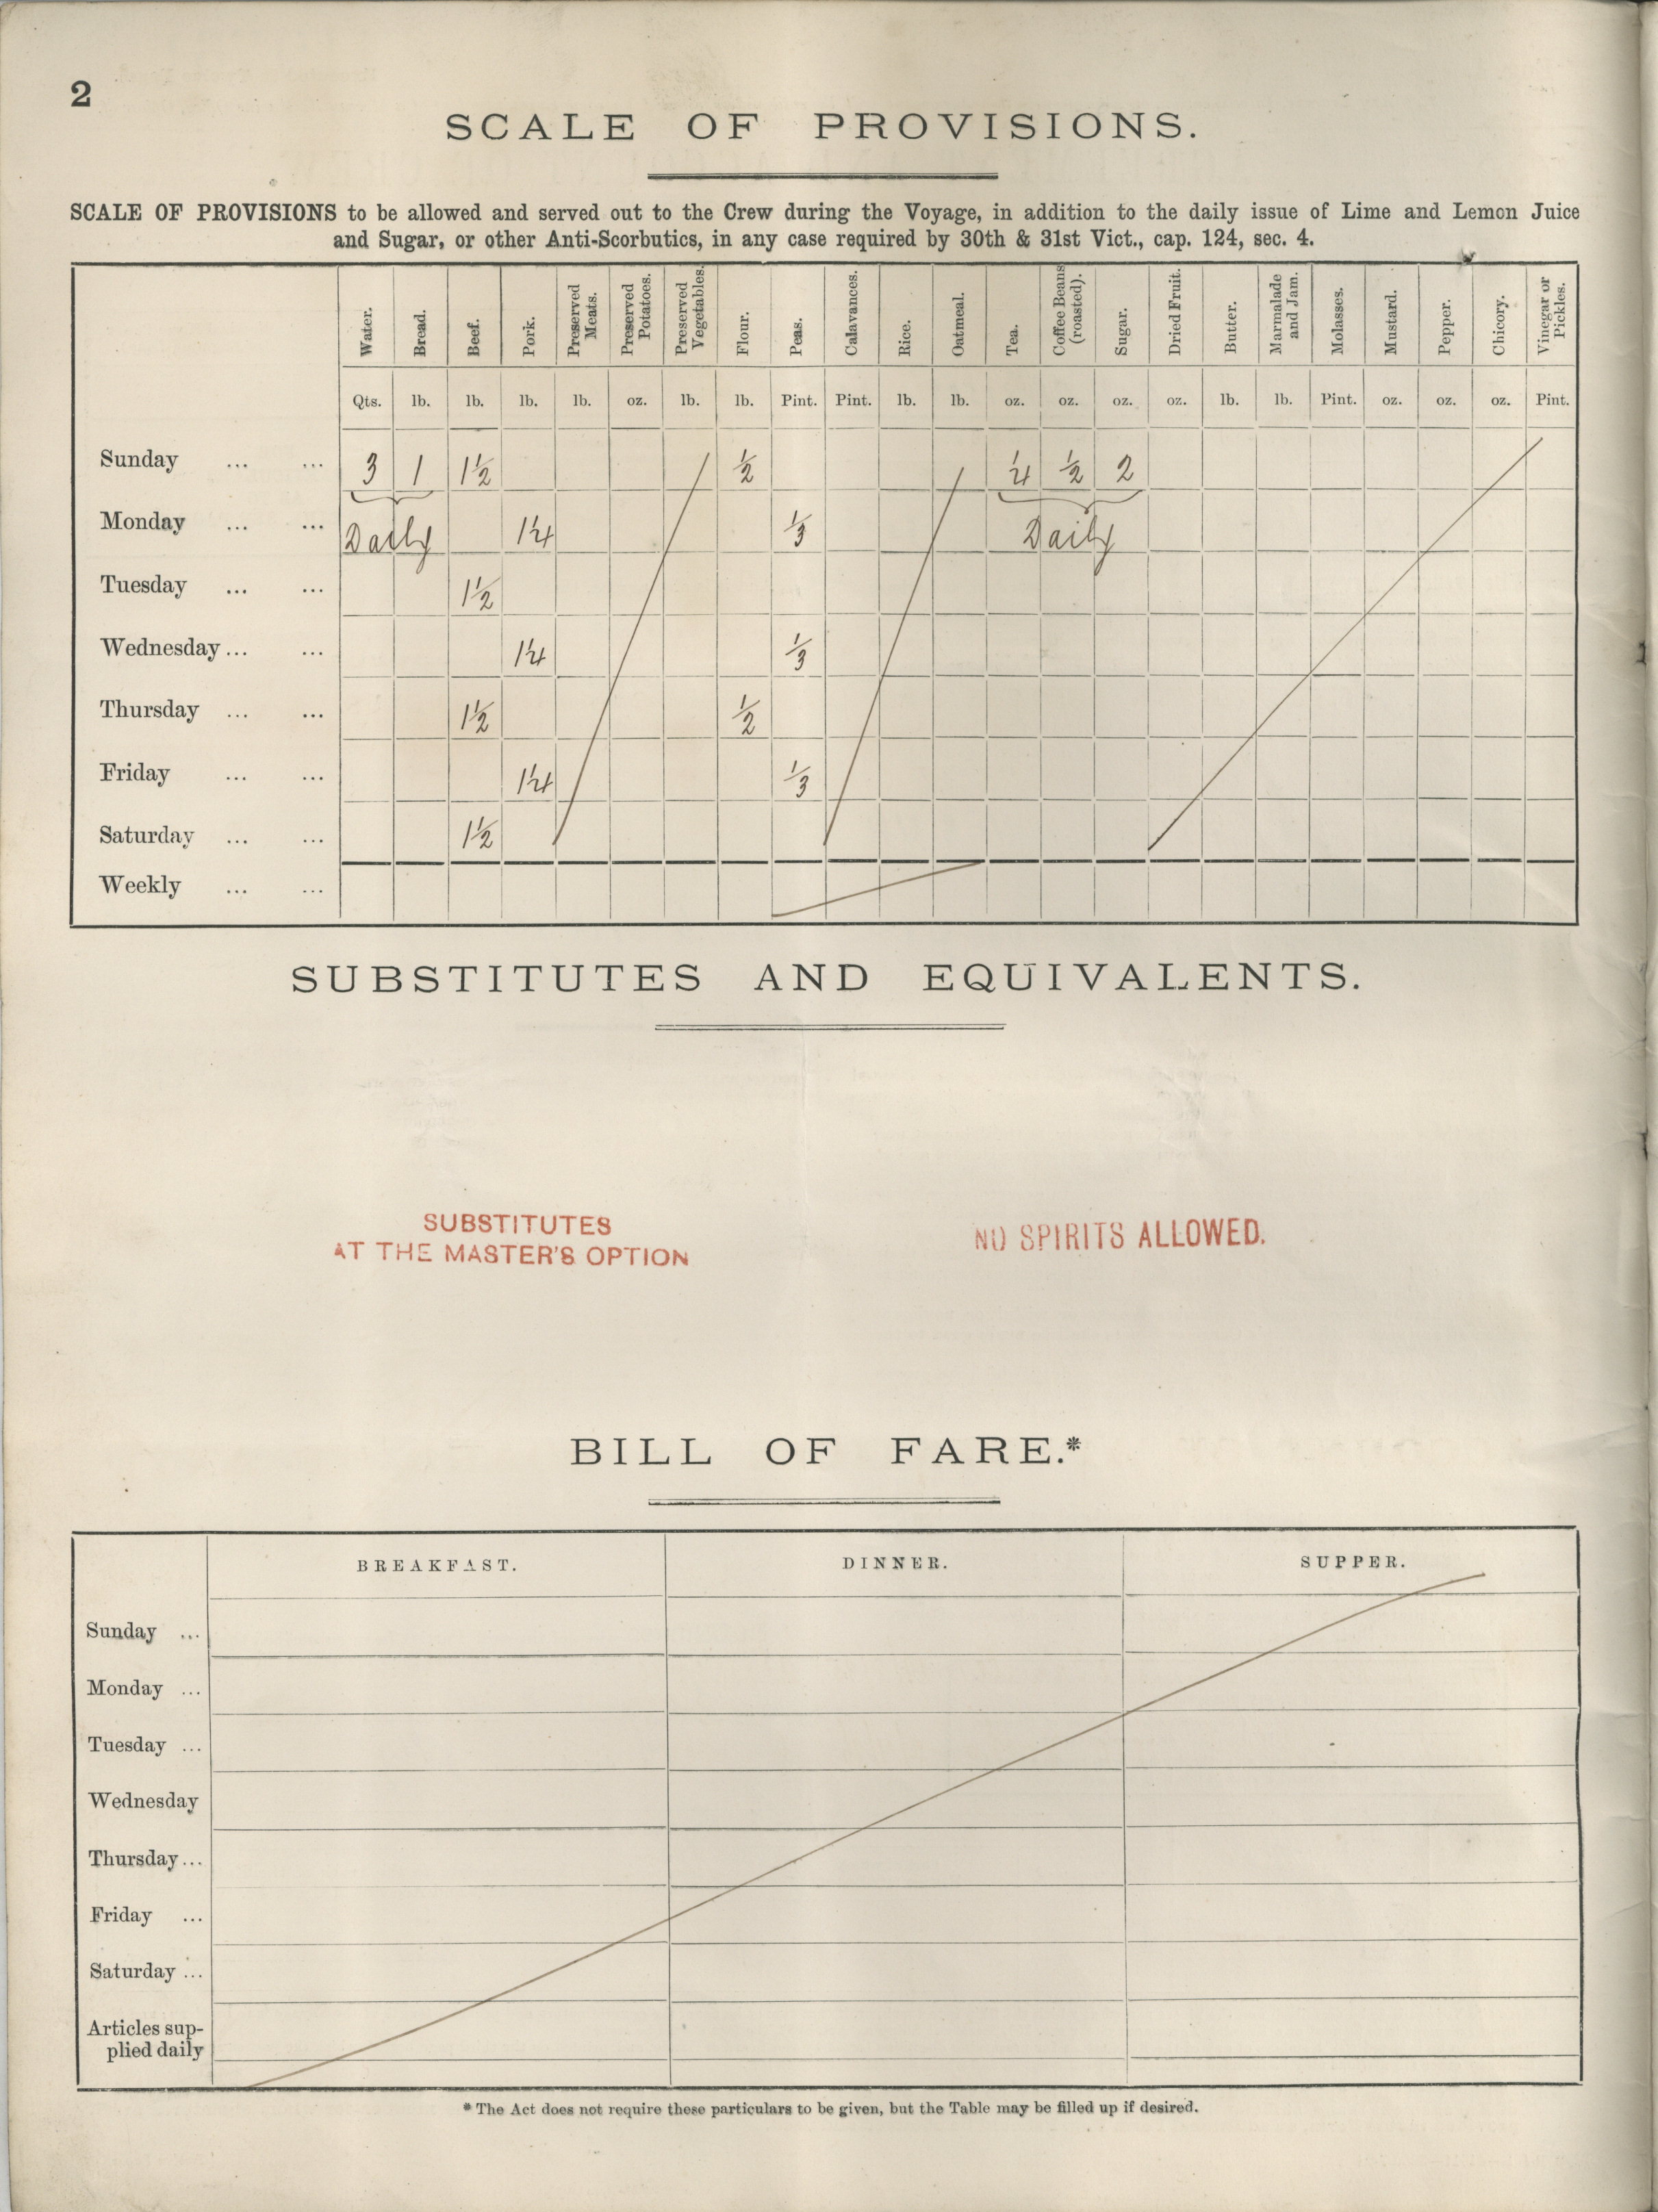 2
SCALE OF PROVISIONS.
SCALE OF PROVISIONS to be allowed and served out to the Crew during the Voyage, in addition to the daily issue of Lime and Lemon Juice
and Sugar, or other Anti-Scorbutics, in any case required by 30th & 31st Vict., cap. 124, sec. 4.
Water. Bread. Beef. Pork. Preserved Meats. Preserved Potatoes. Preserved Vegetables. Flour. Peas. Calavances. Rice. Oatmeal. Tea. Coffee Beans (roasted). Sugar. Dried Fruit. Butter. Marmalade and Jam. Molasses. Mustard. Pepper. Chicory. Vinegar or Pickles.
Qts. lb. lb. lb. lb. oz. lb. lb. Pint. Pint. lb. lb. oz. oz. oz. oz. lb. lb. Pint. oz. oz. oz. Pint.
Sunday ... ... 3 1 1½ ½ ¼ ½ 2
Monday ... ... Daily 1¼ ⅓ Daily
Tuesday ... ... 1½
Wednesday... ... 1¼ ⅓
Thursday ... ... 1½ ½
Friday ... ... 1¼ ⅓
Saturday ... ... 1½
Weekly ... ...
SUBSTITUTES AND EQUIVALENTS.
SUBSTITUTES
AT THE MASTER'S OPTION
NO SPIRITS ALLOWED.
BILL OF FARE.*
BREAKFAST. DINNER. SUPPER.
Sunday ...
Monday ...
Tuesday ...
Wednesday
Thursday...
Friday ...
Saturday ...
Articles sup-
plied daily
* The Act does not require these particulars to be given, but the Table may be filled up if desired.